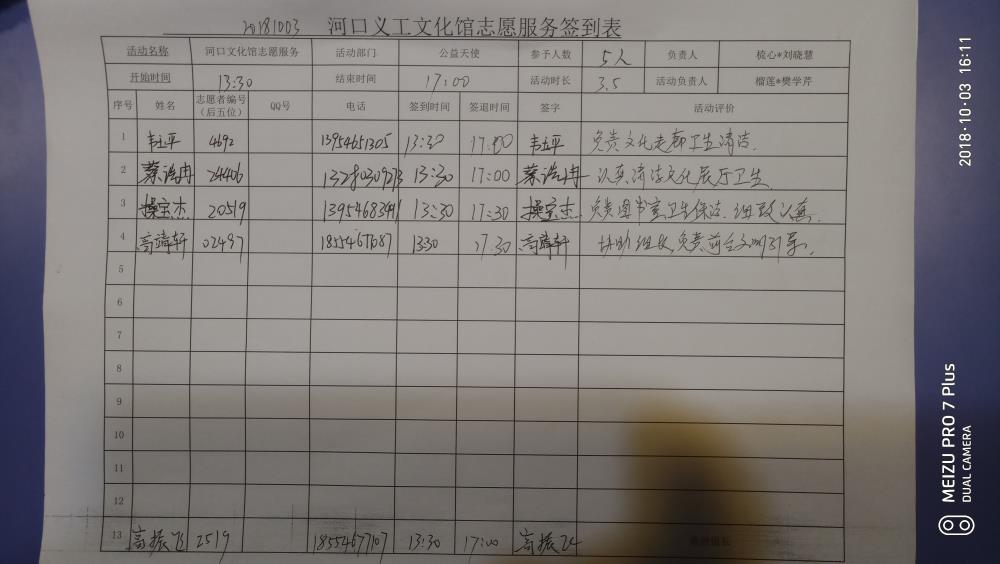 20181003 河口义工文化馆志愿服务签到表
活动名称 河口文化馆志愿服务 活动部门 公益天使 参予人数 5人 负责人 梳心*刘晓慧
开始时间 13:30 结束时间 17:00 活动时长 3.5 活动负责人 榴莲*樊学芹
序号 姓名 志愿者编号（后五位） QQ号 电话 签到时间 签退时间 签字 活动评价
1 4692 13954651305 13:30 17:00 负责文化走廊卫生清洁.
2 蔡浩冉 24406 13280309273 13:30 17:00 蔡浩冉 认真清洁文化展厅卫生
3 操宝杰 20519 13:30 17:30 操宝杰 负责图书室卫生保洁.细致认真.
4 高靖轩 02497 18554676087 13:30 17:30 高靖轩 协助组长负责前台文明引导.
5
6
7
8
9
10
11
12
13 高振飞 2519 18554677107 13:30 17:00 高振飞
2018·10·03 16:11
MEIZU PRO 7 Plus
DUAL CAMERA